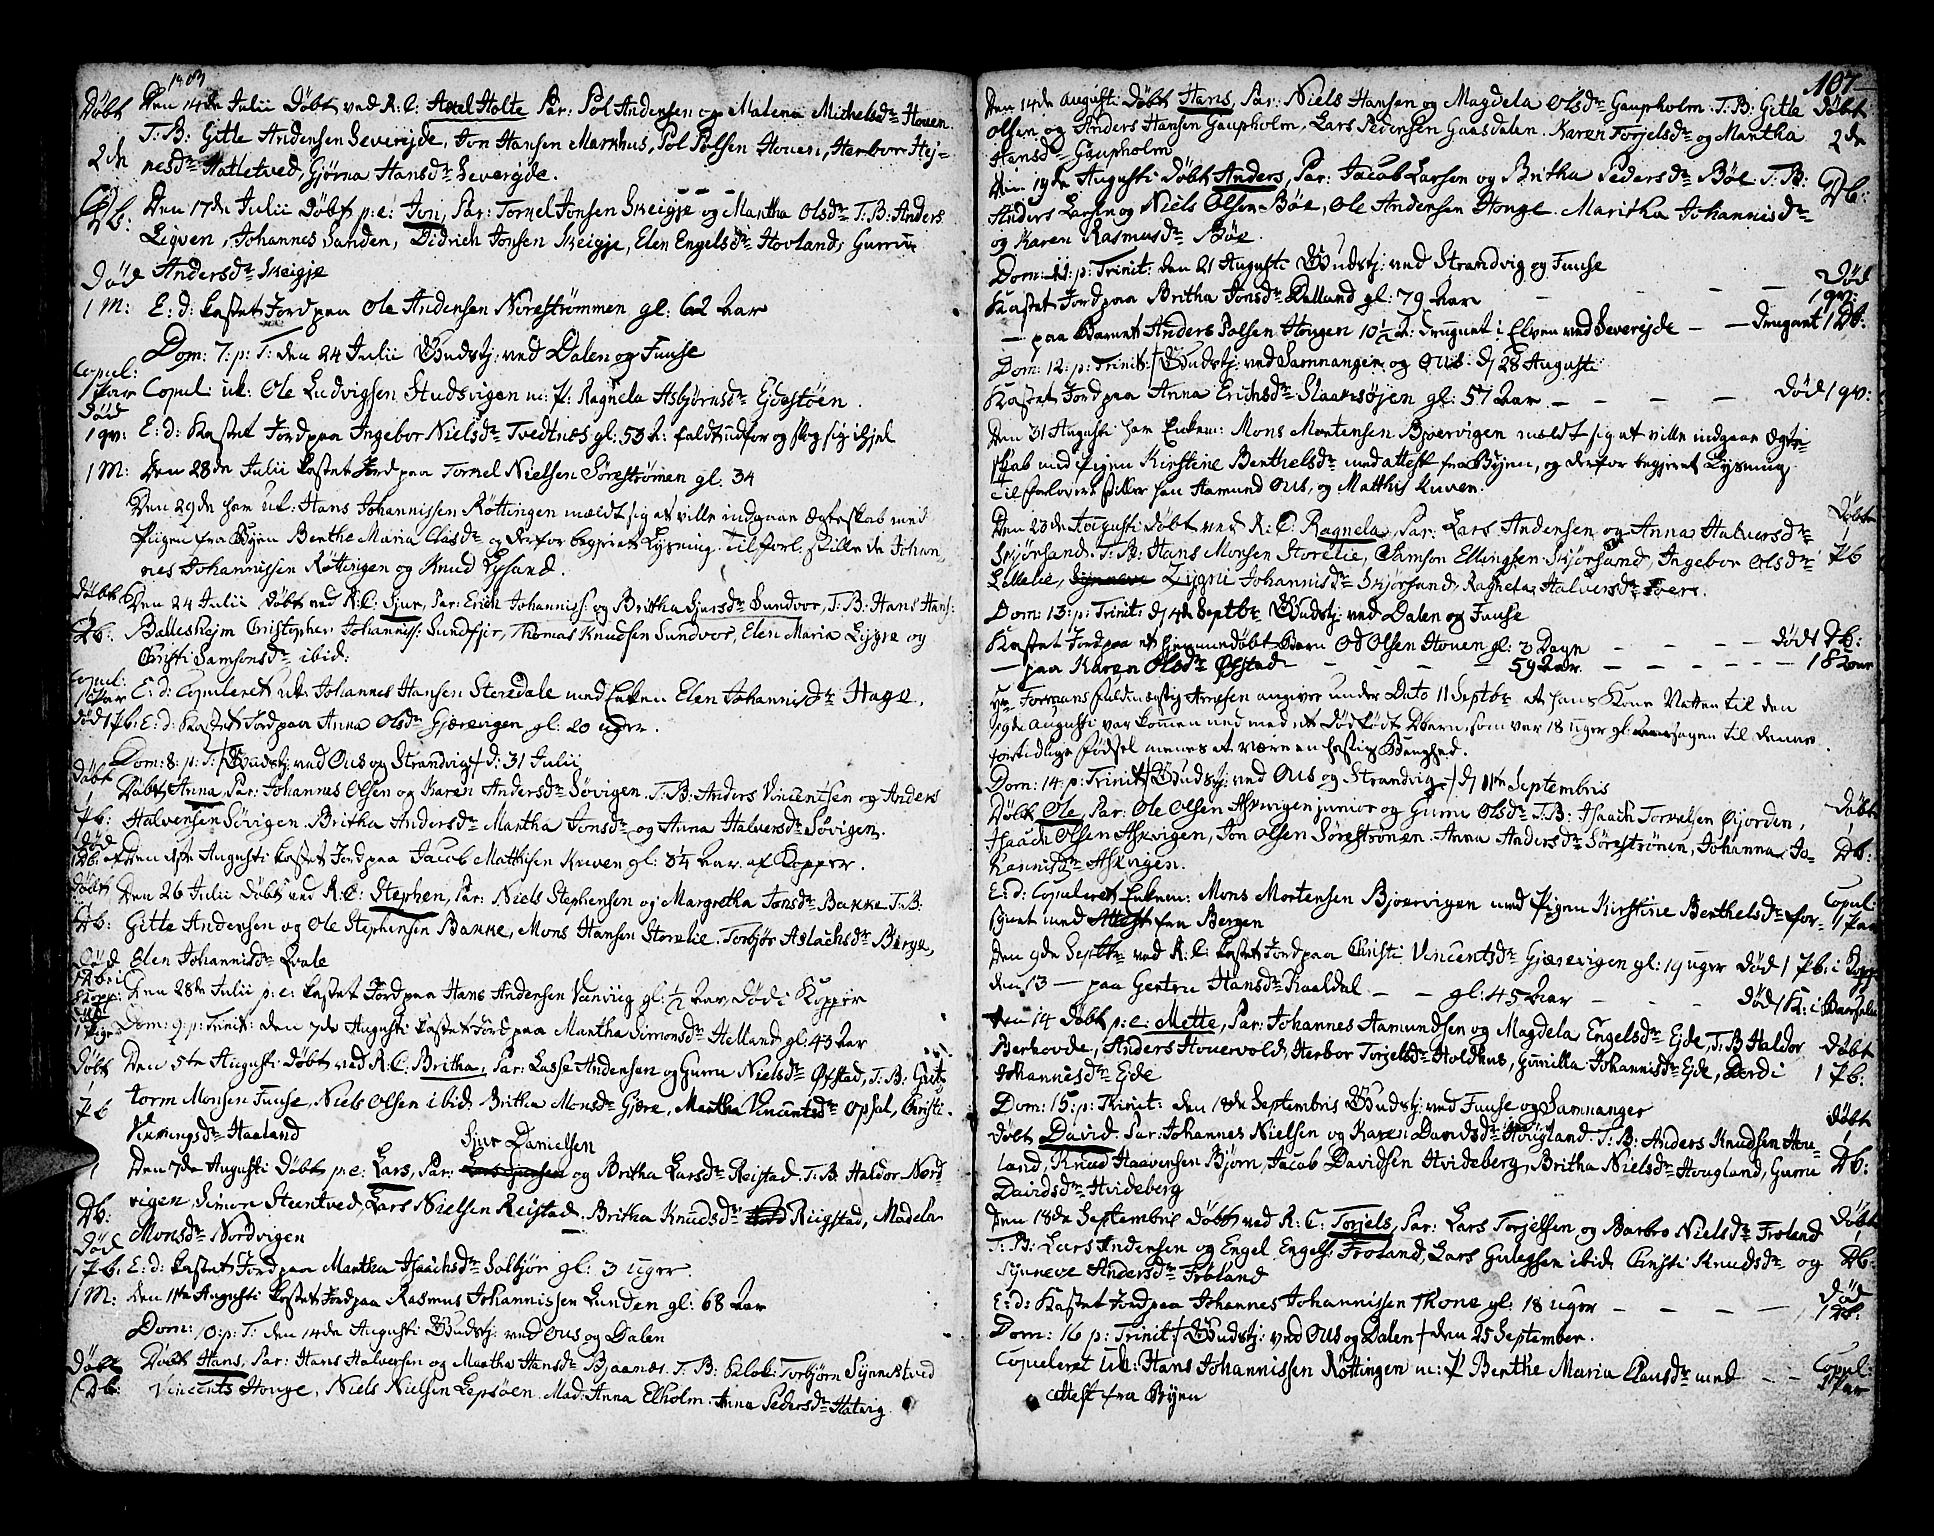 1803
Døbt Den 14de Julii Døbt ved R: C: Axel Holte Par: Pol Andersen og Malena Michelsdr Houen.
T: B: Gitle Andersen Severejde, Jon Hansen Markhus, Pol Polsen Houen, Herbor Hej-
2de nesdr Hatletved, Gjørna Hansdr Severejde.
Db: Den 17de Julii Døbt p: e: Jon, Par: Tormel Jonsen Skeigje og Martha Olsdr T: B: Anders
Ligven, Johannes Sanden, Didrich Jonsen Skeigje, Elen Engelsdr Hovland, Gurru
Død Andersdr Skeigje
1 M: E: d: kastet Jord paa Ole Andersen Norestrømmen gl: 62 Aar
Dom: 7: p: T: den 24 Julii Gudstj: ved Dalen og Fuuse
Copul:
1 Par Copul: uk: Ole Ludvigsen Studsvigen m: P: Ragnela Asbjørnsdr Ejdestøen.
Død
1 qv: E: d: Kastet Jord paa Ingebor Nielsdr Tvedtnes gl: 53 A: faldt udfor og slog sig ihjel
1 M: Den 28de Julii kastet Jord paa Tormel Nielsen Sørestrømen gl: 34
Den 29de har uk: Hans Johannissen Røttingen meldt sig at ville indgaae Ægteskab med
Pigen fra Byen Berthe Maria Clasdr og derfor begjeret Lysning. Til forl. stillede Johan-
nes Johannissen Røttingen og Knud Lysand.
Døbt Den 24 Julii døbt ved R: C: Sjur, Par: Erich Johanniss: og Britha Sjursdr Sundvor, T: B: Hans Hans:
Db: Ballesheim Christopher Johanniss: Sundfjer, Thomas Knudsen Sundvor, Elen Maria Lygre og
Christi Samsonsdr ibid:
Copul:
1 Par E: d: Copuleret uk: Johannes Hansen Storedale med Enken Elen Johannisdr Hage.
død 1 Pb: E: d: Kastet Jord paa Anna Olsdr Gjærevigen gl: 20 uger.
Dom: 8: p: T: / Gudstj: ved Ous og Strandvig / d: 31 Julii
Døbt
1 Døbt Anna, Par: Johannes Olsen og Karen Andersdr Søvigen. T: B: Anders Vincentsen og Anders
Pb: Halvorsen Søvigen. Britha Andersdr Martha Jonsdr og Anna Halversdr Søvigen.
Død
1 Db: af Den 1ste Augusti kastet Jord paa Jacob Matthisen Kuven gl: 3¼ Aar af Kopper.
Døbt Den 26 Julii Døbt ved R: C: Stephen, Par: Niels Stephensen og Margretha Jonsdr Bakke T: B:
Db: Gitle Andersen og Ole Stephensen Bakke, Mons Hansen Storelie. Torbjør Aslachsdr Berge,
Død Elen Johannisdr Qvale
1 Db: i
Kopp: Den 28de Julii p: e: kastet Jord paa Hans Andersen Vinnig gl: ½ Aar, død i Kopper
Død
1 Pige Dom: 9: p: Trinit: den 7de Augusti kastet Jord paa Martha Simonsdr Helland gl: 43 Aar
Døbt Den 5te Augusti døbt ved R: C: Britha, Par: Lasse Andersen og Gurru Nielsdr Øfstad, T: B: Gut-
1
Pb torm Monsen Fuuse, Niels Olsen ibid. Britha Monsdr Gjære, Martha Vincentsdr Opsal, Christi
Vemmingsdr Haaland
Sjur Danielsen
1 Den 7de Augusti Døbt p: e: Lars, Par: og Britha Larsdr Reistad. T: B: Haldor Nord
Db: vigen, Simon Steentved, Lars Nielsen Reistad. Britha Knudsdr Reigstad, Madela
Død Monsdr Nordvigen
1 Pb: E: d: kastet Jord paa Martha Isaachsdr Solbjør gl: 3 uger.
1 M: Den 11te Augusti kastet Jord paa Rasmus Johannissen Lunden gl: 68 Aar
Dom: 10: p: T: den 14de Augusti Gudstj: ved Ous og Dalen
Døbt Døbt Hans, Par: Hans Halversen og Martha Hansdr Bjaanæs. T: B: Klok: Torbjørn Synnestved
1 Db: Vincents Houge, Niels Nielsen Lepsøen. Mad: Anna Elholm. Anna Pedersdr Hatvig

107
Den 14de Augusti Døbt Hans, Par: Niels Hansen og Magdela Olsdr Gaupholm. T: B: Gitle Døbt
Olsen og Anders Hansen Gaupholm, Lars Pedersen Gaasdalen. Karen Torjelsdr og Martha 2de
Hansdr Gaupholm
Den 19de Augusti Døbt Anders, Par: Jacob Larsen og Britha Pedersdr Bøe. T: B: Db:
Anders Larsen og Niels Olsen Bøe, Ole Andersen Houge. Maritha Johannisdr
og Karen Rasmusdr Bøe.
Dom: 11: p: Trinit: den 21 Augusti Gudstj: ved Strandvig og Fuuse
Kastet Jord paa Britha Jonsdr Kalland gl: 79 Aar — — — Død 1 qv:
— paa Barnet Anders Polsen Hougen 10½ A: druknet i Elven ved Severejde — — druknet 1 Db:
Dom: 12: p: Trinit: / Gudstj: ved Samnanger og Ous. d. 28 Augusti
Kastet Jord paa Anna Erichsdr Slaakesøjen gl: 57 Aar — — — — Død 1 qv:
Den 31 Augusti har Enkem: Mons Mortensen Bjoervigen meldt sig at ville indgaae Ægte-
skab med Pigen Kirstine Berthelsdr med attest fra Byen, og derfor begjeret Lysning.
Til forlovere stiller han Aamund Ous, og Matthis Kuven.
Den 23de Augusti døbt ved R: C: Ragnela, Par: Lars Andersen og Anna Halversdr Døbt
Skjørsand. T: B: Hans Monsen Storelie, Samson Ellingsen Skjørsand, Ingebor Olsdr Pb
Lillelie, Zygni Johannisdr Skjørsand, Ragnela Halversdr Toere.
Dom: 13: p: Trinit: d. 4de Septbr: Gudstj: ved Dalen og Fuuse
Kastet Jord paa et hjemmedøbt Barn Od Olsen Houen gl: 3 Dage — — — død 1 Db:
— paa Karen Olsdr Øfstad — — — 59 Aar. — — — — 1 Kone
Hr Formans fuldmægtig Arnesen angiver under Dato 11 Septbr at hans Kone Natten til den
19de Augusti var kommen ned med et dødfødt Db:arn, som var 18 uger gl: aarsagen til denne
fortidlige fødsel menes at være en hastig Benghed.
Dom: 14: p: Trinit: / Gudstj: ved Ous og Strandvig / d. 11te Septembris
Døbt Ole, Par: Ole Olsen Askevigen junior og Gurru Olsdr T: B: Isaach Tormelsen Gjorden, Døbt
Isaach Olsen Askevigen, Jon Olsen Sørestrømen. Anna Andersdr Sørestrømen, Johanna Jo- Db:
hannisdr Askvigen.
E: d: Copuleret Enkem: Mons Mortensen Bjoervigen med Pigen Kirstine Berthelsdr for- Copul:
synet med Attest fra Bergen 1 Par
Den 9de Septbr ved R: C: kastet Jord paa Christi Vincentsdr Gjærevigen gl: 19 uger Død 1 Pb: i Kopp:
den 13 — paa Gertru Hansdr Raaldal — — gl: 45 Aar — — død 1 K: i Barselse
Den 14 Døbt p: e: Mette, Par: Johannes Aamundsen og Magdela Engelsdr Ejde, T: B: Haldor Døbt
Berhovde, Anders Hovevold, Herbor Torjelsdr Holdhus, Gunnilla Johannisdr Ejde, Dordi 1 Pb:
Johannesdr Ejde
Dom: 15: p: Trinit: den 18de Septembris Gudstj: ved Fuuse og Samnanger
Døbt David. Par: Johannes Nielsen og Kari Davidsdr Hougland. T: B: Anders Knudsen Hou- Døbt
land, Knud Haavensen Bjørn, Jacob Davidsen Hvideberg, Britha Nielsdr Hougland, Gurru 1 Db:
Davidsdr Hvideberg
Den 18de Septembris Døbt ved R: C: Torjels, Par: Lars Torjelsen og Barbro Nielsdr Froland Døbt
T: B: Lars Andersen og Engel Engels: Froland, Lars Gulegsen ibid. Christi Knudsdr og 1 Db:
Synneve Andersdr Froland
E: d: Kastet Jord paa Johannes Johannissen Thone gl: 18 uger — — — — Død 1 Db:
Dom: 16 p: Trinit: / Gudstj: ved Ous og Dalen / den 25 September.
Copuleret Uk: Hans Johannissen Røttingen m: P: Berthe Maria Clausdr med — — Copul:
attest fra Byen 1 Par